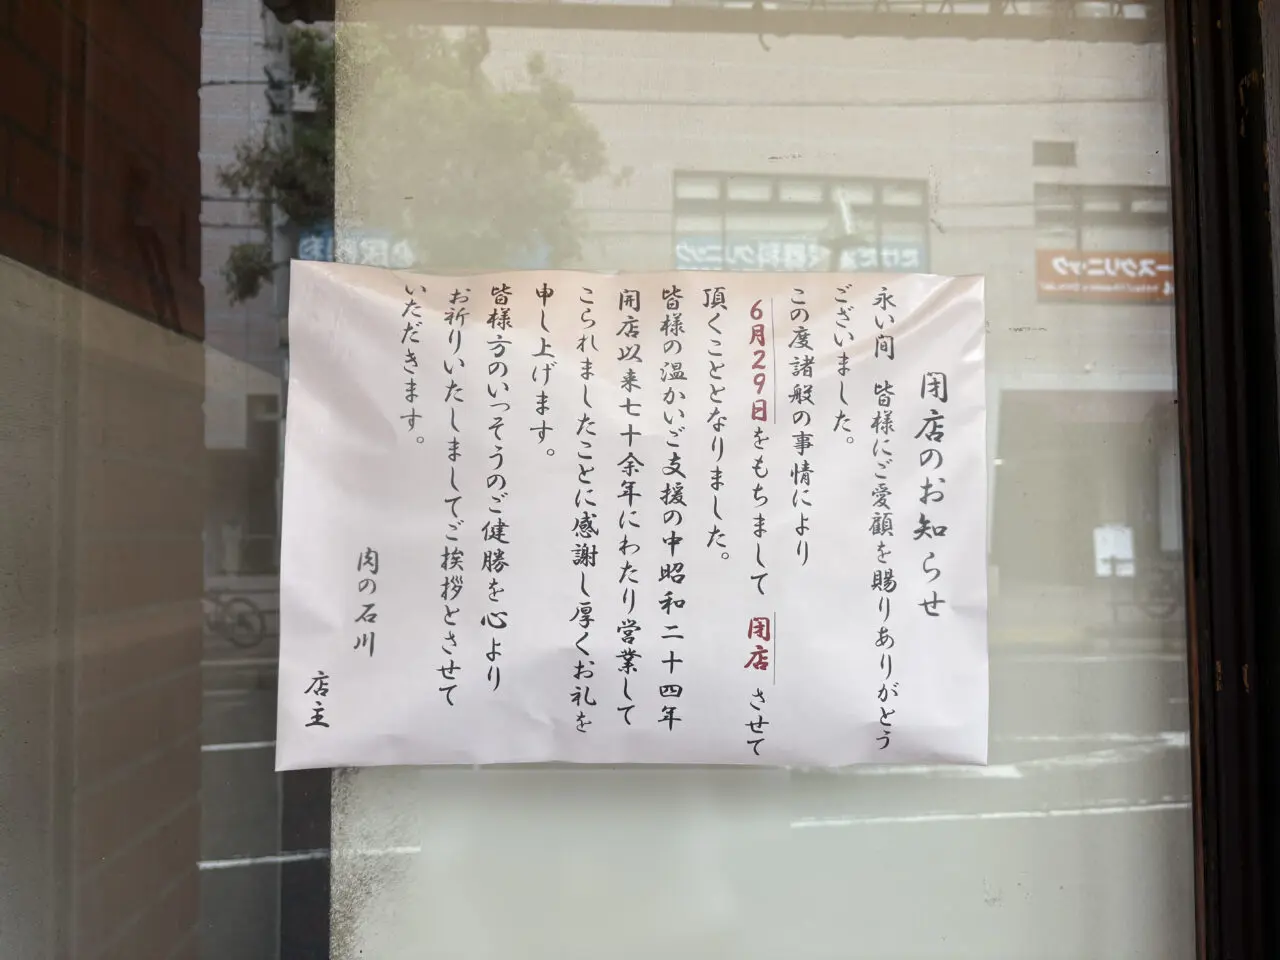 閉店のお知らせ
永い間　皆様にご愛顧を賜りありがとう
ございました。
この度諸般の事情により
6月29日をもちまして　閉店　させて
頂くこととなりました。
皆様の温かいご支援の中昭和二十四年
開店以来七十余年にわたり営業して
こられましたことに感謝し厚くお礼を
申し上げます。
皆様方のいっそうのご健勝を心より
お祈りいたしましてご挨拶とさせて
いただきます。
肉の石川
店主
ースクリニック